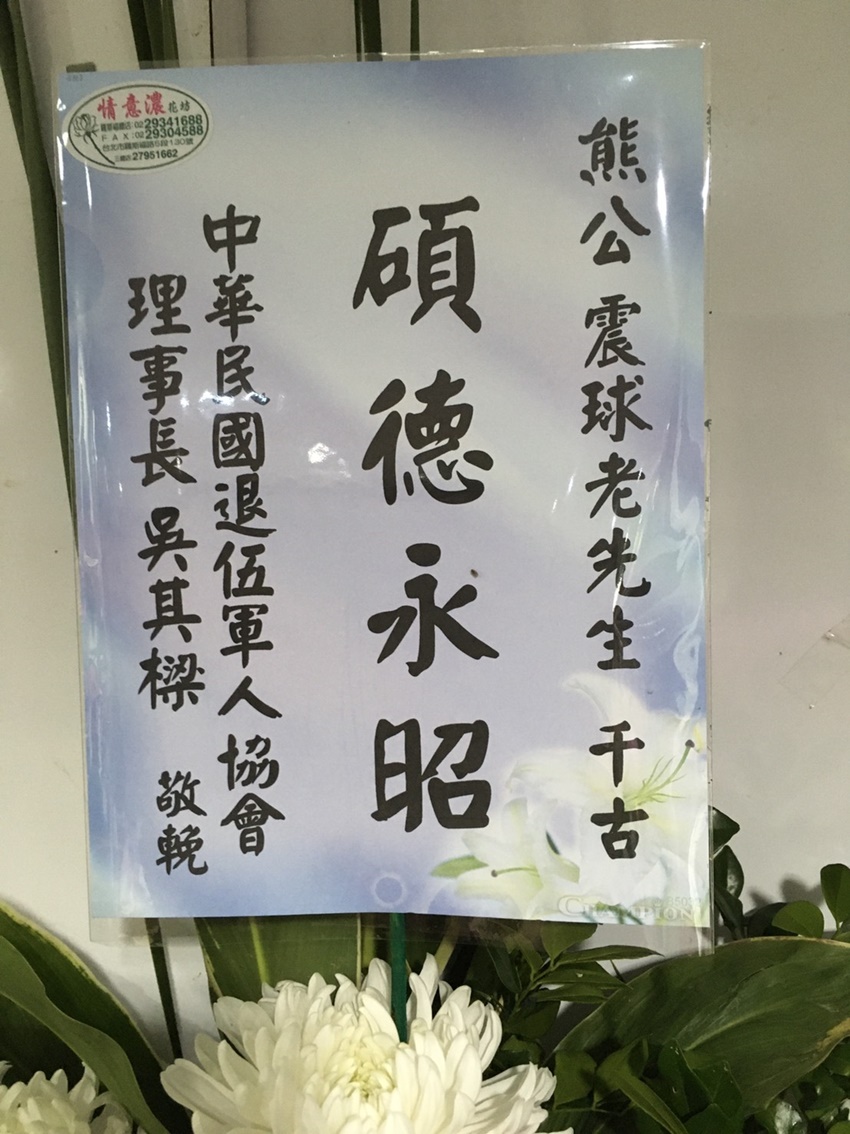 熊公震球老先生 千古
碩德永昭
中華民國退伍軍人協會
理事長 吳其樑 敬輓
情意濃花坊
羅斯福總店:02 29341688
FAX:02 29304588
台北市羅斯福路5段130號
27951662
CHAMPION